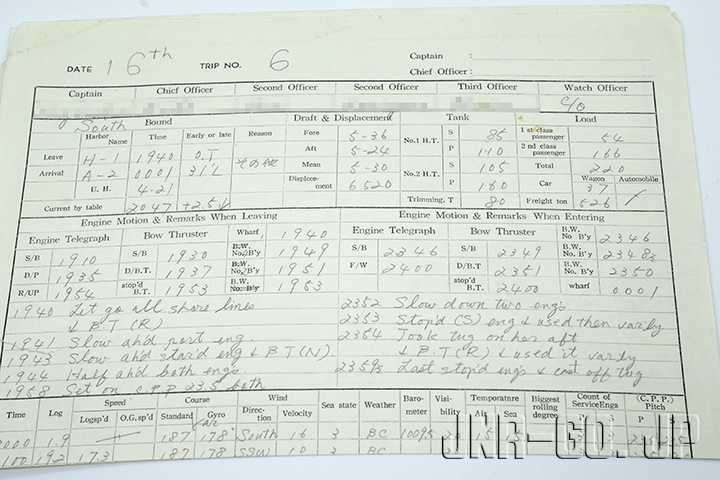 DATE 16th TRIP NO. 6 Captain :
Chief Officer :
Captain Chief Officer Second Officer Second Officer Third Officer Watch Officer
C/O
South Bound Draft & Displacement Tank Load
Harbor Name Time Early or late Reason Fore 5-36 No.1 H.T. S 85 1 st class passenger 54
Leave H-1 1940 O.T その他 Aft 5-24 P 110 2 nd class passenger 166
Arrival A-2 0001 Mean 5-30 No.2 H.T. S 105 Total 220
U. H. 4-21 Displacement 6520 P 160 Car Wagon 37 Automobile
Current by table 2047 Trimming. T 80 Freight ton 526
Engine Motion & Remarks When Leaving Engine Motion & Remarks When Entering
Engine Telegraph Bow Thruster Wharf 1940 Engine Telegraph Bow Thruster B.W. No B'y 2346
S/B 1910 S/B 1930 B.W. B'y 1949 S/B 2346 S/B 2349 B.W. No B'y
D/P 1935 D/B.T. 1937 B.W. B'y 1951 F/W 2400 D/B.T 2351 B.W. No. B'y 2350
R/UP 1954 stop'd B.T. 1953 B.W. No. B'y 1953 stop'd B.T. 2400 wharf 0001
1940 Let go all shore lines 2352 Slow down two eng's
& B.T (R) 2353 Stop'd (S) eng & used then varily
1941 Slow ah'd port eng. 2354 Took tug on her aft
1943 Slow ah'd star'd eng & B.T (N). & B.T (R) & used it varily
1944 Half ah'd both engs. Last stop'd eng's & cast off tug
1958 Set on C.P.P 23.5 both
Time Log Speed Course Wind Sea state Weather Barometer Visibility Temperatnre Biggest rolling degree Count of ServiceEngs (C. P. P.) Pitch
Logsp'd O.G.sp'd Standard Gyro Direction Velocity Air Sea P S P
1.9 187 178 South 16 3 BC 10095
192 17.3 187 178 SSW 10 3 BC
JNR-GO.JP